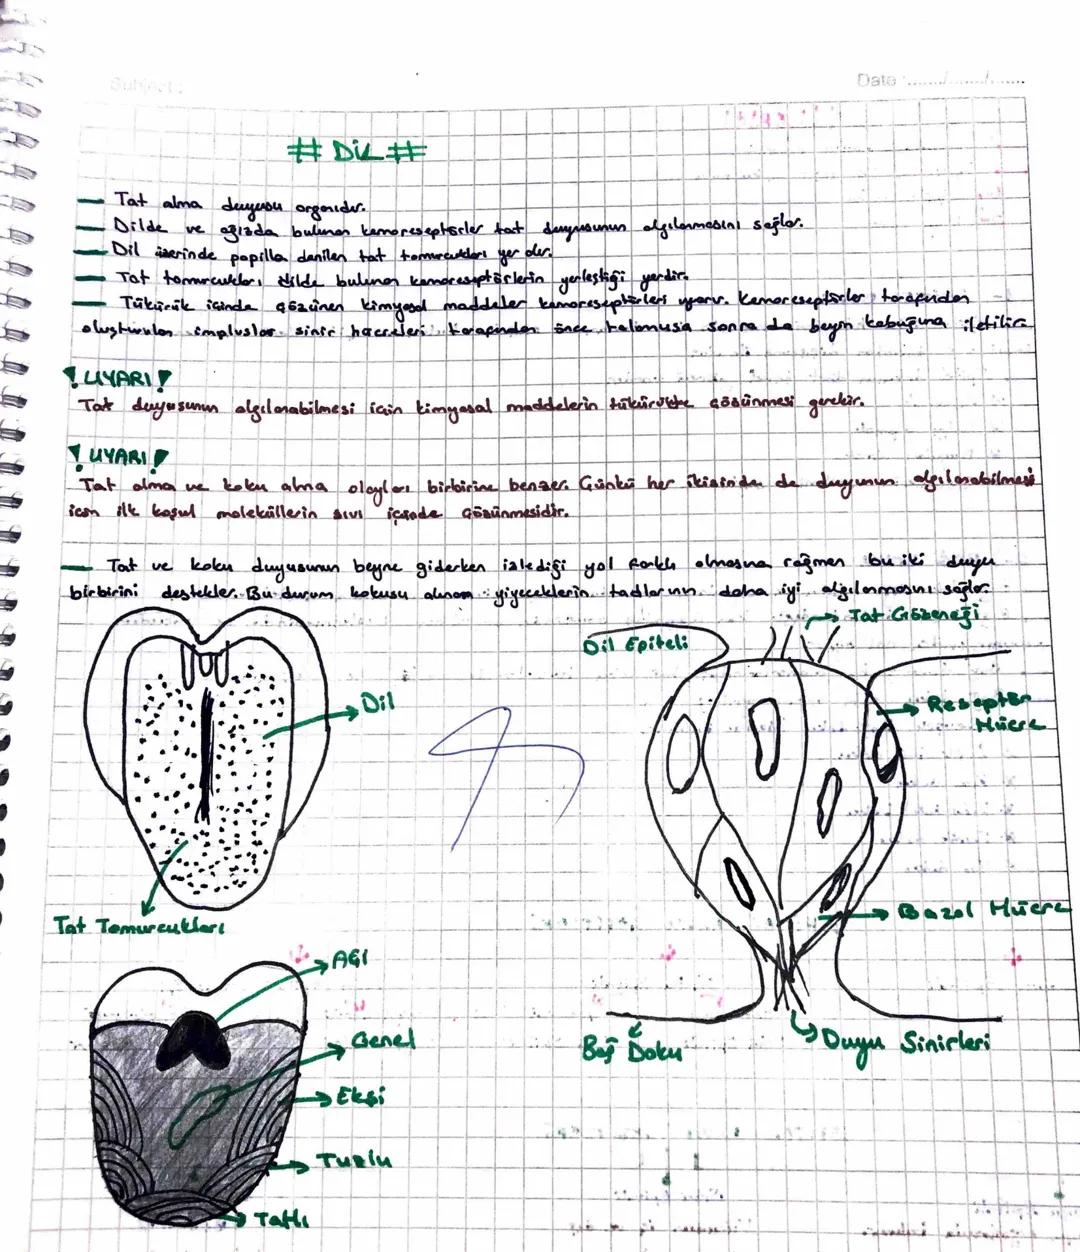 Subject:
Date :
# DİL #
Tat alma duyusu organıdır.
Dilde ve ağızda bulunan kemoreseptörler tat duyusunun algılanmasını sağlar.
Dil üzerinde papilla denilen tat tomurcukları yer alır.
Tat tomurcukları dilde bulunan kemoreseptörlerin yerleştiği yerdir.
Tükürük içinde çözünen kimyasal maddeler kemoreseptörleri uyarır. Kemoreseptörler tarafından
oluşturulan impluslar sinir hücreleri tarafından önce talamusa sonra da beyin kabuğuna iletilir
! UYARI !
Tat duyusunun algılanabilmesi için kimyasal maddelerin tükürükte çözünmesi gerekir.
! UYARI !
Tat alma ve koku alma olayları birbirine benzer. Çünkü her ikisinde de duyunun algılanabilmesi
için ilk koşul moleküllerin sıvı içinde çözünmesidir.
Tat ve koku duyusunun beyne giderken izlediği yol farklı olmasına rağmen bu iki duyu
birbirini destekler. Bu durum kokusu alınan yiyeceklerin tadlarının daha iyi algılanmasını sağlar.
Tat Gözeneği
Dil Epiteli
Dil
Reseptör
Hücre
Bazal Hücre
Tat Tomurcukları
ACI
Genel
Bağ Doku
Duyu Sinirleri
Ekşi
Tuzlu
Tatlı